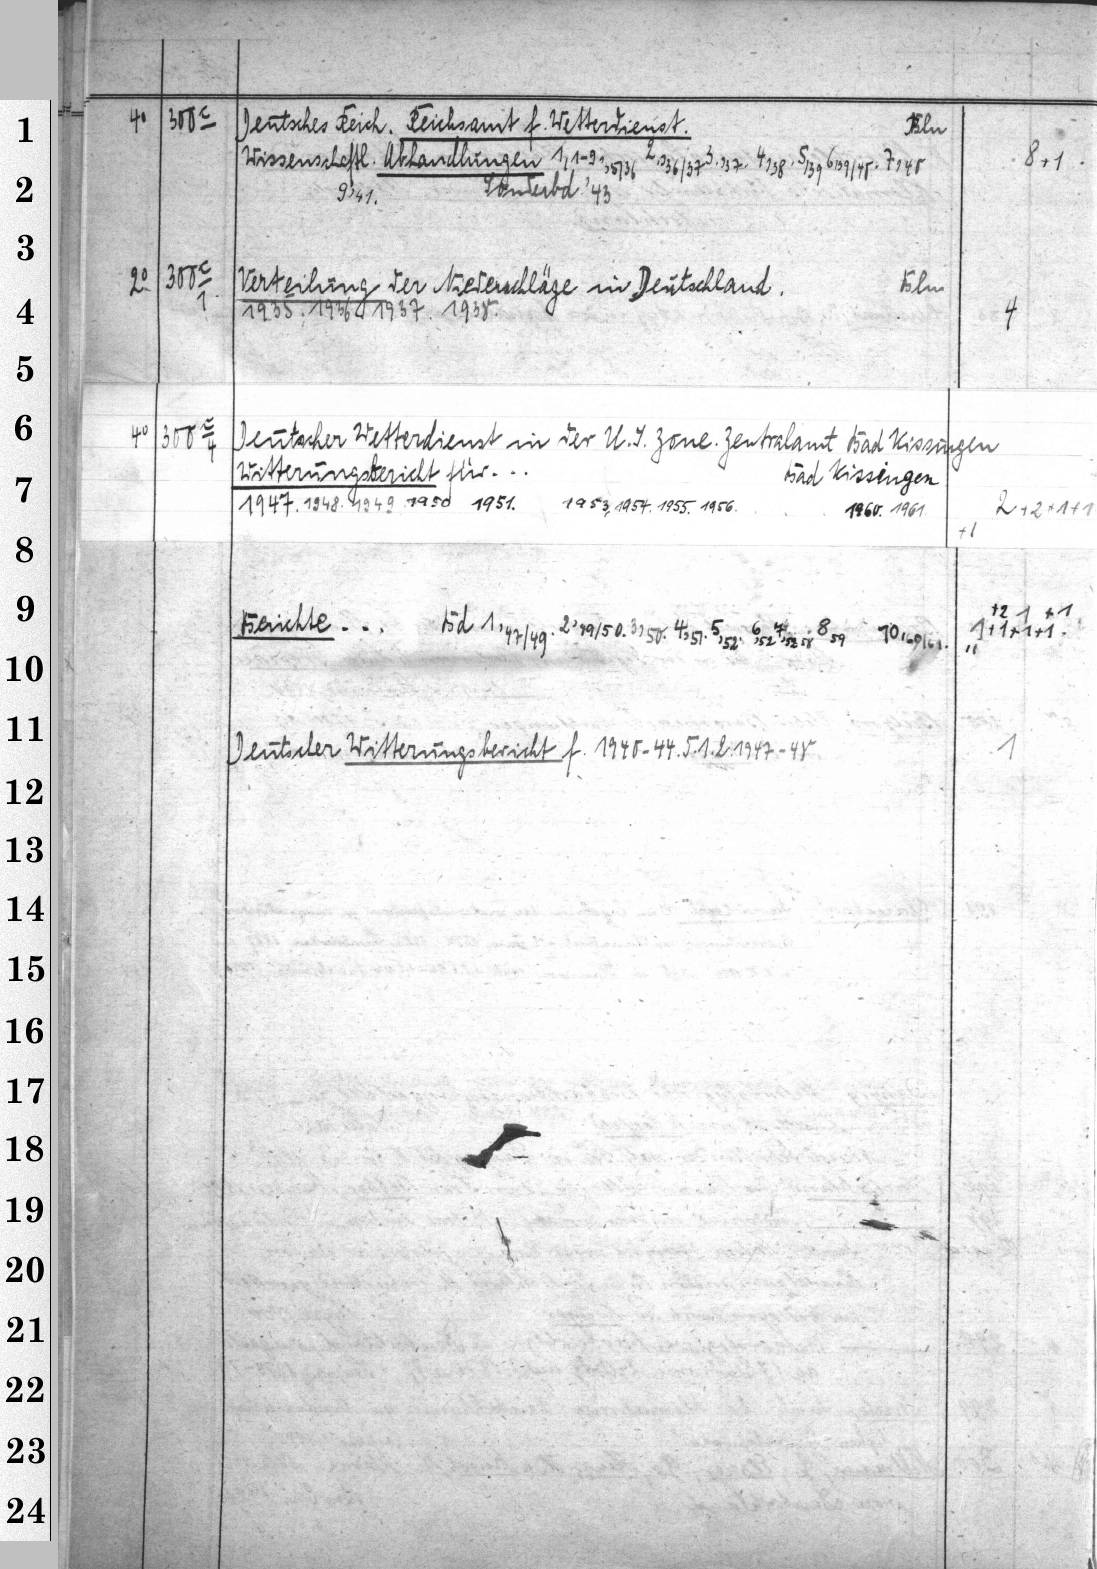 4° 300c Deutsches Reich. Reichsamt f. Wetterdienst. Bln
Wissenschaftl. Abhandlungen 1,1-9,35/36 2,36/37 3,37. 4,38. 5,39 6,39/40. 7,40 8+1.
9,41. Sonderbd '43
2° 300c/1 Verteilung der Niederschläge in Deutschland. Bln
1935. 1936. 1937 1938. 4
4° 300c/4 Deutscher Wetterdienst in der U.S. Zone. Zentralamt Bad Kissingen
Witterungsbericht für... Bad Kissingen
1947. 1948. 1949 1950 1951. 1953, 1954. 1955. 1956. 1960. 1961 2+2+1+1
+1
+2 1 +1
Berichte... Bd 1,47/49. 2,49/50. 3,50. 4,51. 5,52. 6,52 8,59 10,60/61. 1+1+1+1.
Deutscher Witterungsbericht f. 1940-44.5.1.2.1947-48 1
1
2
3
4
5
6
7
8
9
10
11
12
13
14
15
16
17
18
19
20
21
22
23
24